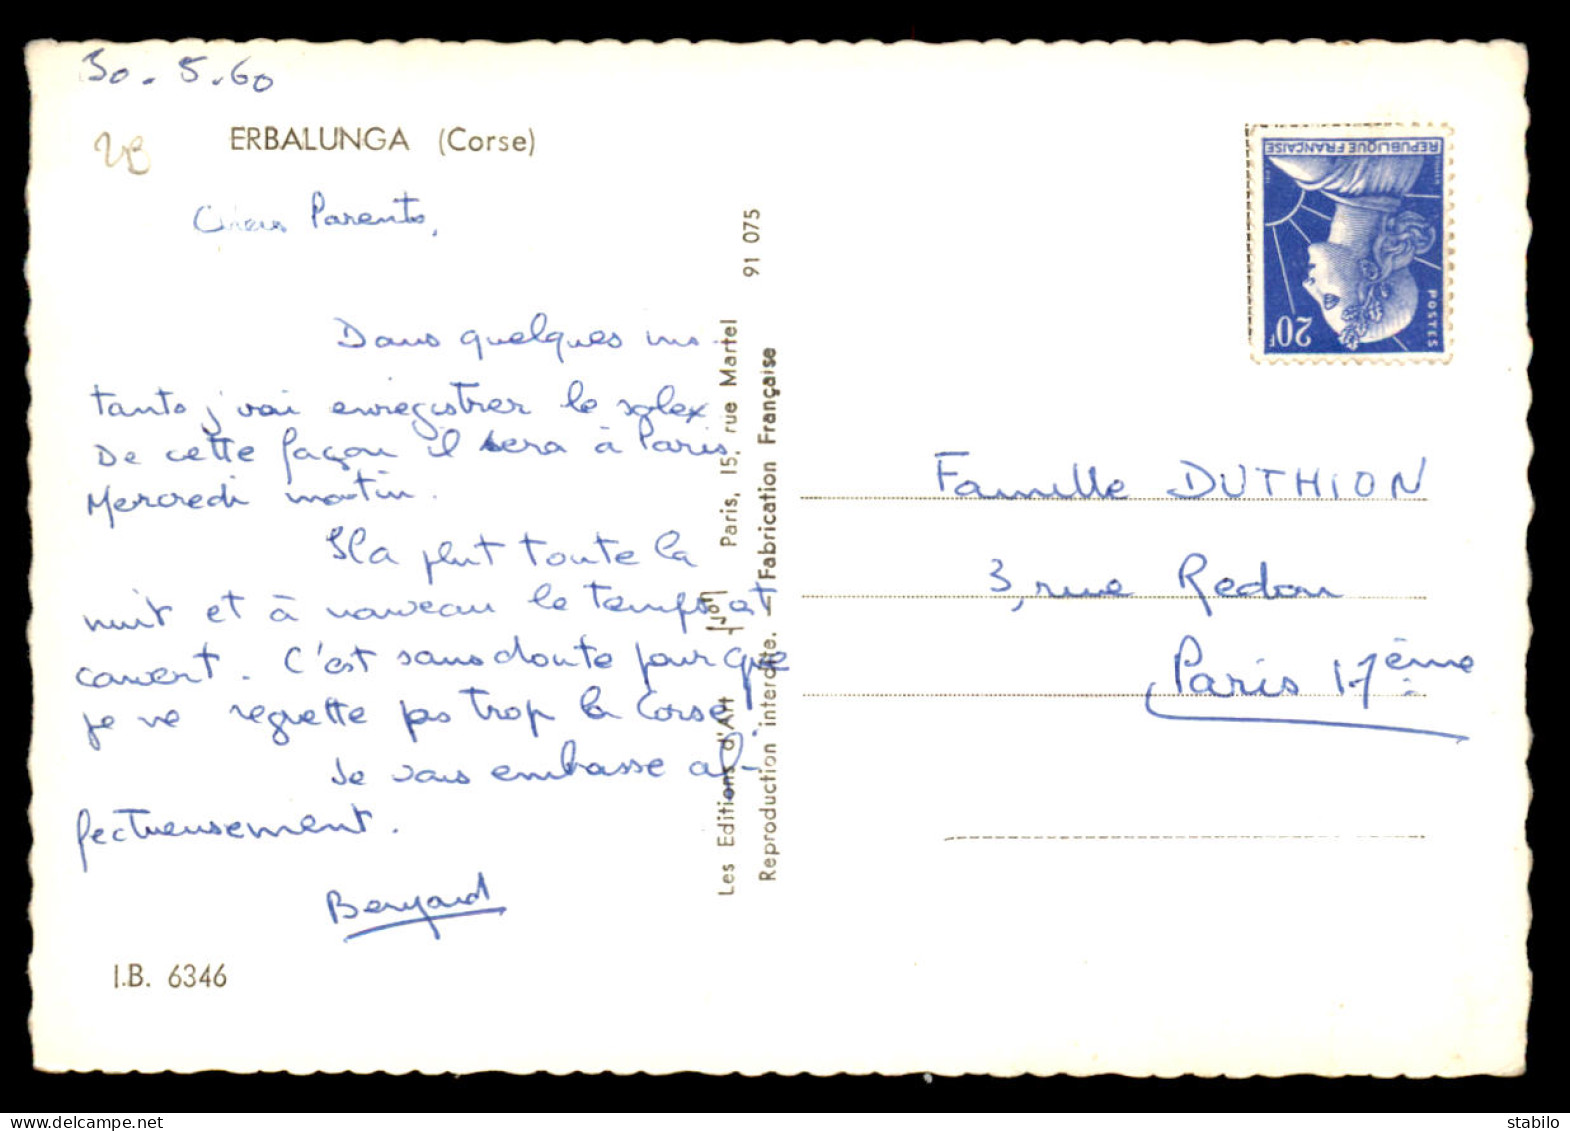 30.5.60
2B
ERBALUNGA (Corse)
Chers Parents,
Dans quelques ins-
tants j'vai enregistrer le solex
De cette façon il sera à Paris
Mercredi matin.
Il a plut toute la
nuit et à nouveau le temps est
couvert. C'est sans doute pour que
je ne regrette pas trop la Corse
Je vous embrasse af-
fectueusement.
Bernard
I.B. 6346
Les Editions d'Art Yvon Paris, 15, rue Martel 91 075
Reproduction interdite. — Fabrication Française
REPUBLIQUE FRANÇAISE
POSTES
20F
Famille DUTHION
3, rue Redon
Paris 17ème
www.delcampe.net
stabilo